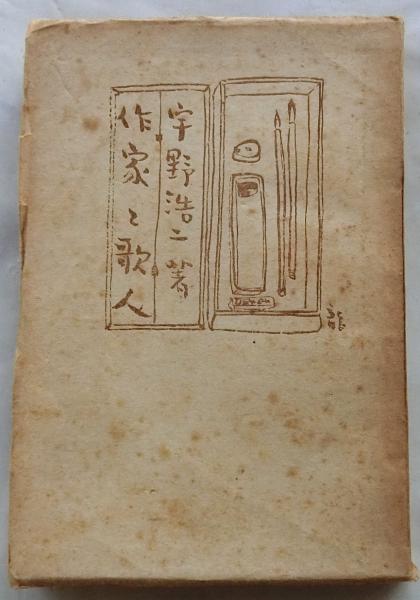 宇野浩二著
作家と歌人
龍